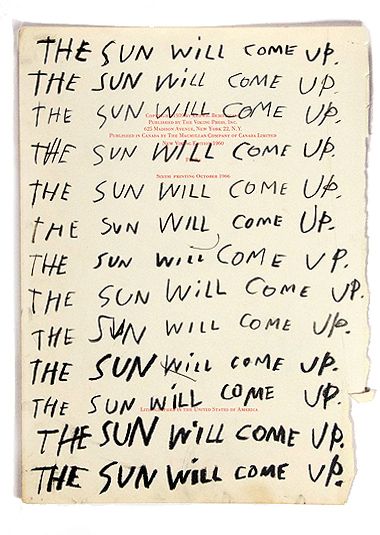 THE SUN WILL COME UP.
THE SUN WILL COME UP.
THE SUN WILL COME UP.
Copyright
Published by The Viking Press, Inc.
625 Madison Avenue, New York 22, N.Y.
Published in Canada by The Macmillan Company of Canada Limited
New Viking Edition 1960
THE SUN WILL COME UP.
Sixth printing October 1966
THE SUN WILL COME UP.
THE SUN WILL COME UP.
THE SUN WILL COME UP.
THE SUN WILL COME UP.
THE SUN WILL COME UP.
THE SUN WILL COME UP.
THE SUN WILL COME UP.
in the United States of America
THE SUN WILL COME UP.
THE SUN WILL COME UP.